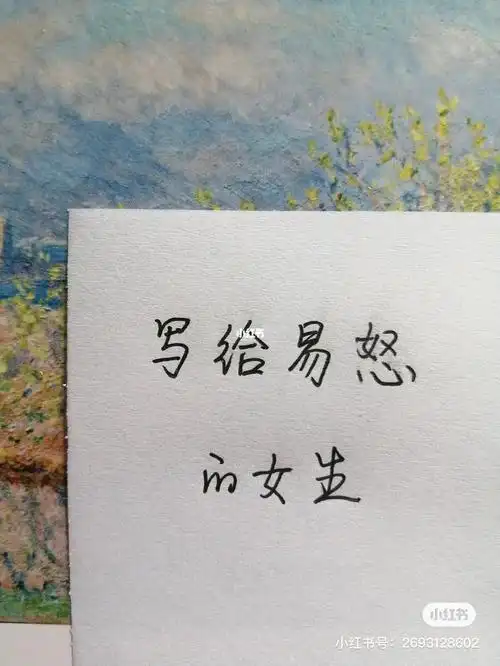 写给易怒
小红书
的女生
小红书
小红书号：2693128602